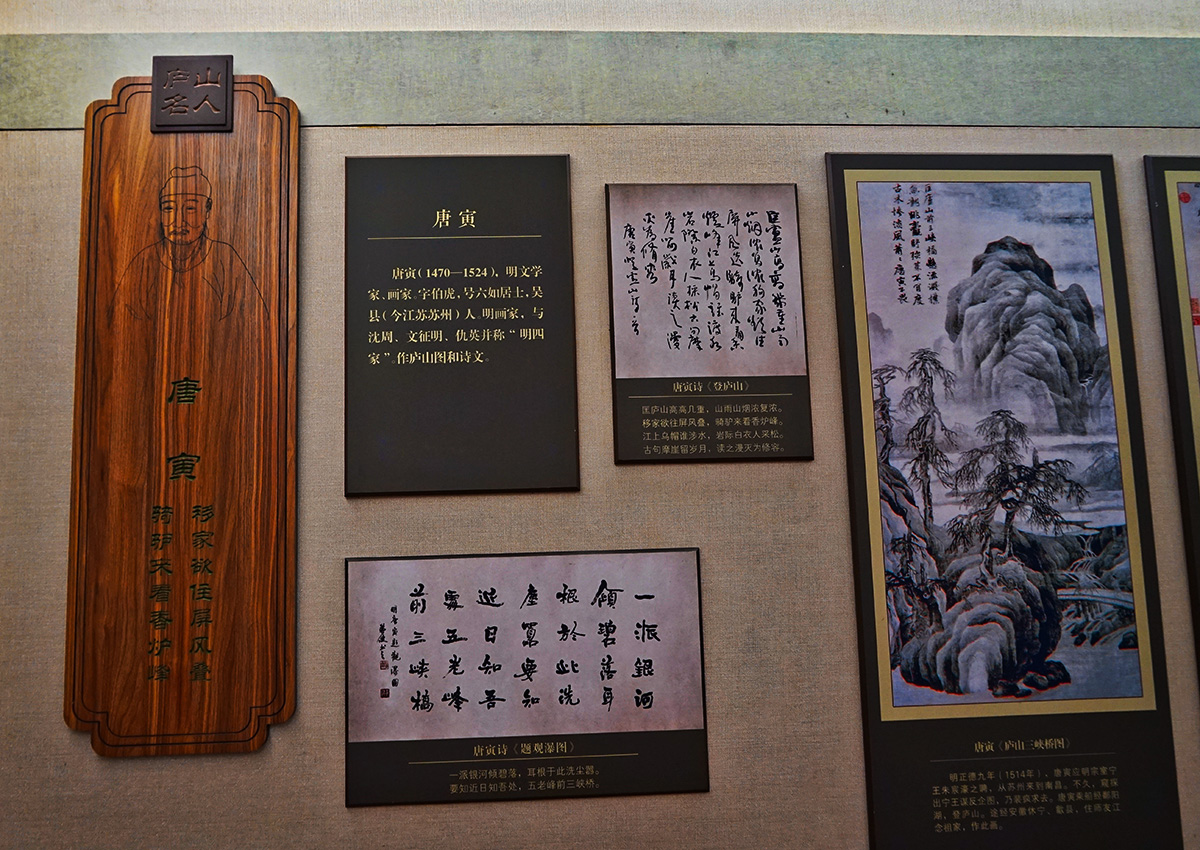 庐山
名人
唐寅
移家欲住屏风叠
骑驴来看香炉峰
唐寅
唐寅（1470—1524），明文学
家、画家。字伯虎，号六如居士，吴
县（今江苏苏州）人。明画家，与
沈周、文征明、仇英并称“明四
家”。作庐山图和诗文。
唐寅诗《登庐山》
匡庐山高高几重，山雨山烟浓复浓。
移家欲往屏风叠，骑驴来看香炉峰。
江上乌帽谁涉水，岩际白衣人采松。
古句摩崖留岁月，读之漫灭为修容。
一派銀河
傾碧落耳
根於此洗
塵囂要知
近日知吾
處五老峰
前三峡橋
唐寅诗《题观瀑图》
一派银河倾碧落，耳根于此洗尘嚣。
要知近日知吾处，五老峰前三峡桥。
匡廬山前三峡橋
唐寅《庐山三峡桥图》
明正德九年（1514年），唐寅应明宗室宁
王朱宸濠之聘，从苏州来到南昌。不久，窥探
出宁王谋反企图，乃装疯求去。唐寅乘船经鄱阳
湖，登庐山。途经安徽休宁、歙县，住师友江
念祖家，作此画。